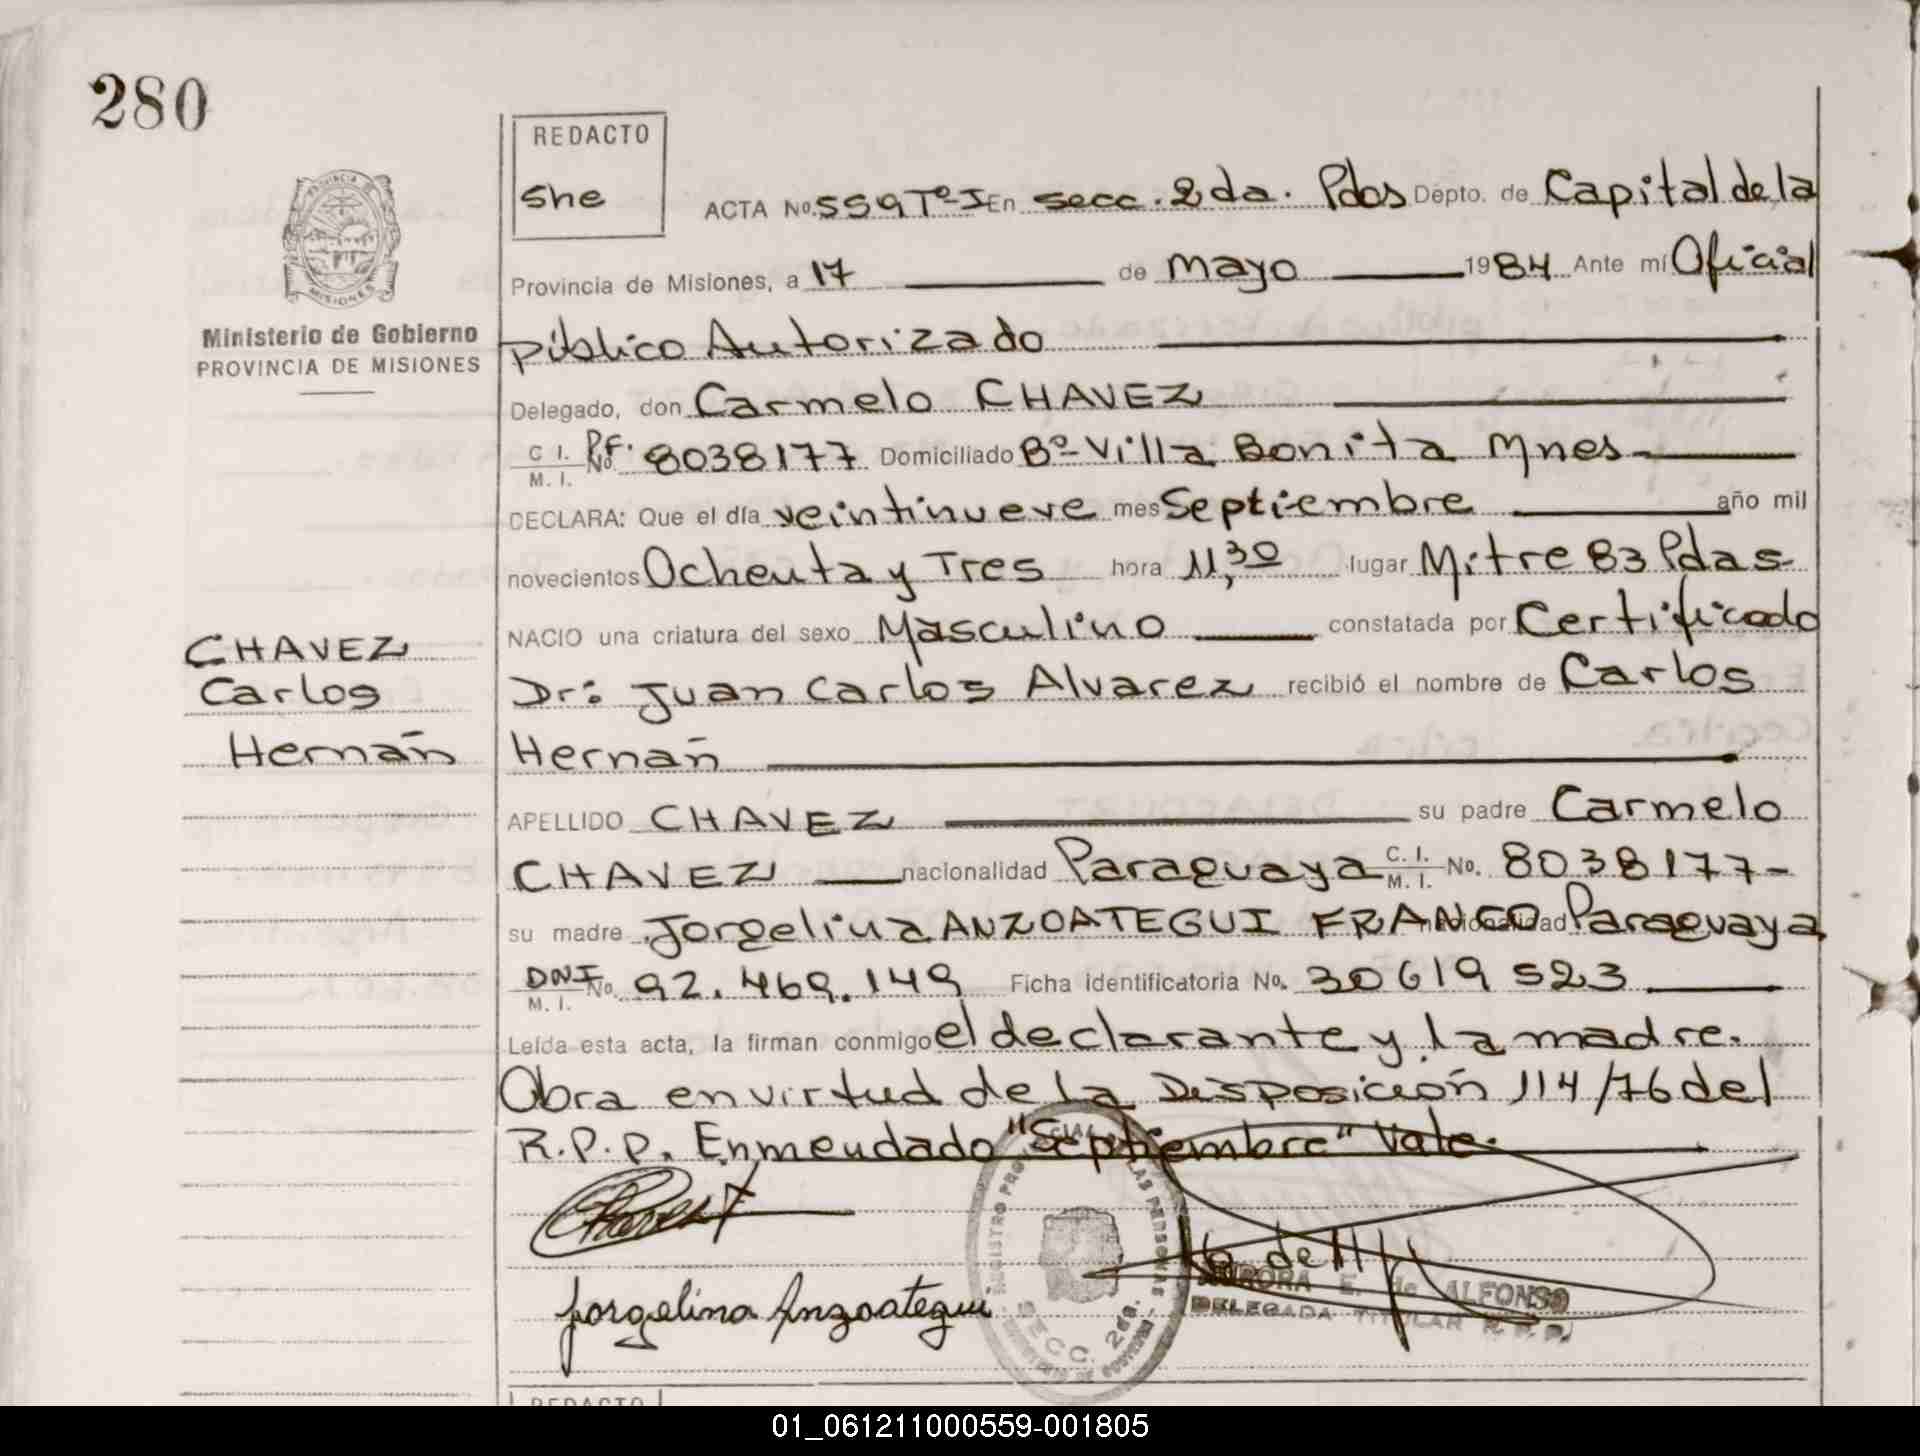 280
REDACTO
she
ACTA No. 559 Tº I En secc. 2da. Pdas Depto. de Capital de la
PROVINCIA DE
MISIONES
Ministerio de Gobierno
PROVINCIA DE MISIONES
Provincia de Misiones, a 17 de mayo 1984 Ante mí Oficial
público Autorizado
Delegado, don Carmelo CHAVEZ
C. I. P.F.
M. I. No. 8038177 Domiciliado Bº Villa Bonita Mnes-
DECLARA: Que el día veintinueve mes Septiembre año mil
novecientos Ochenta y Tres hora 11,30 lugar Mitre 83 Pdas-
NACIO una criatura del sexo Masculino constatada por Certificado
CHAVEZ
Carlos
Hernán
Dr: Juan Carlos Alvarez recibió el nombre de Carlos
Hernán
APELLIDO CHAVEZ su padre Carmelo
CHAVEZ nacionalidad Paraguaya C. I. M. I. No. 8038177-
su madre Jorgelina ANZOATEGUI FRANCO nacionalidad Paraguaya
DNI M. I. No. 92.469.149 Ficha identificatoria No. 30619523
Leída esta acta, la firman conmigo el declarante y la madre.
Obra en virtud de la Disposición 114/76 del
R.P.P. Enmendado "Septiembre" Vale.
Chavez
Jorgelina Anzoategui
SECC. 2da.
AURORA E. de ALFONSO
DELEGADA TITULAR R. P. P.
REDACTO
01_061211000559-001805